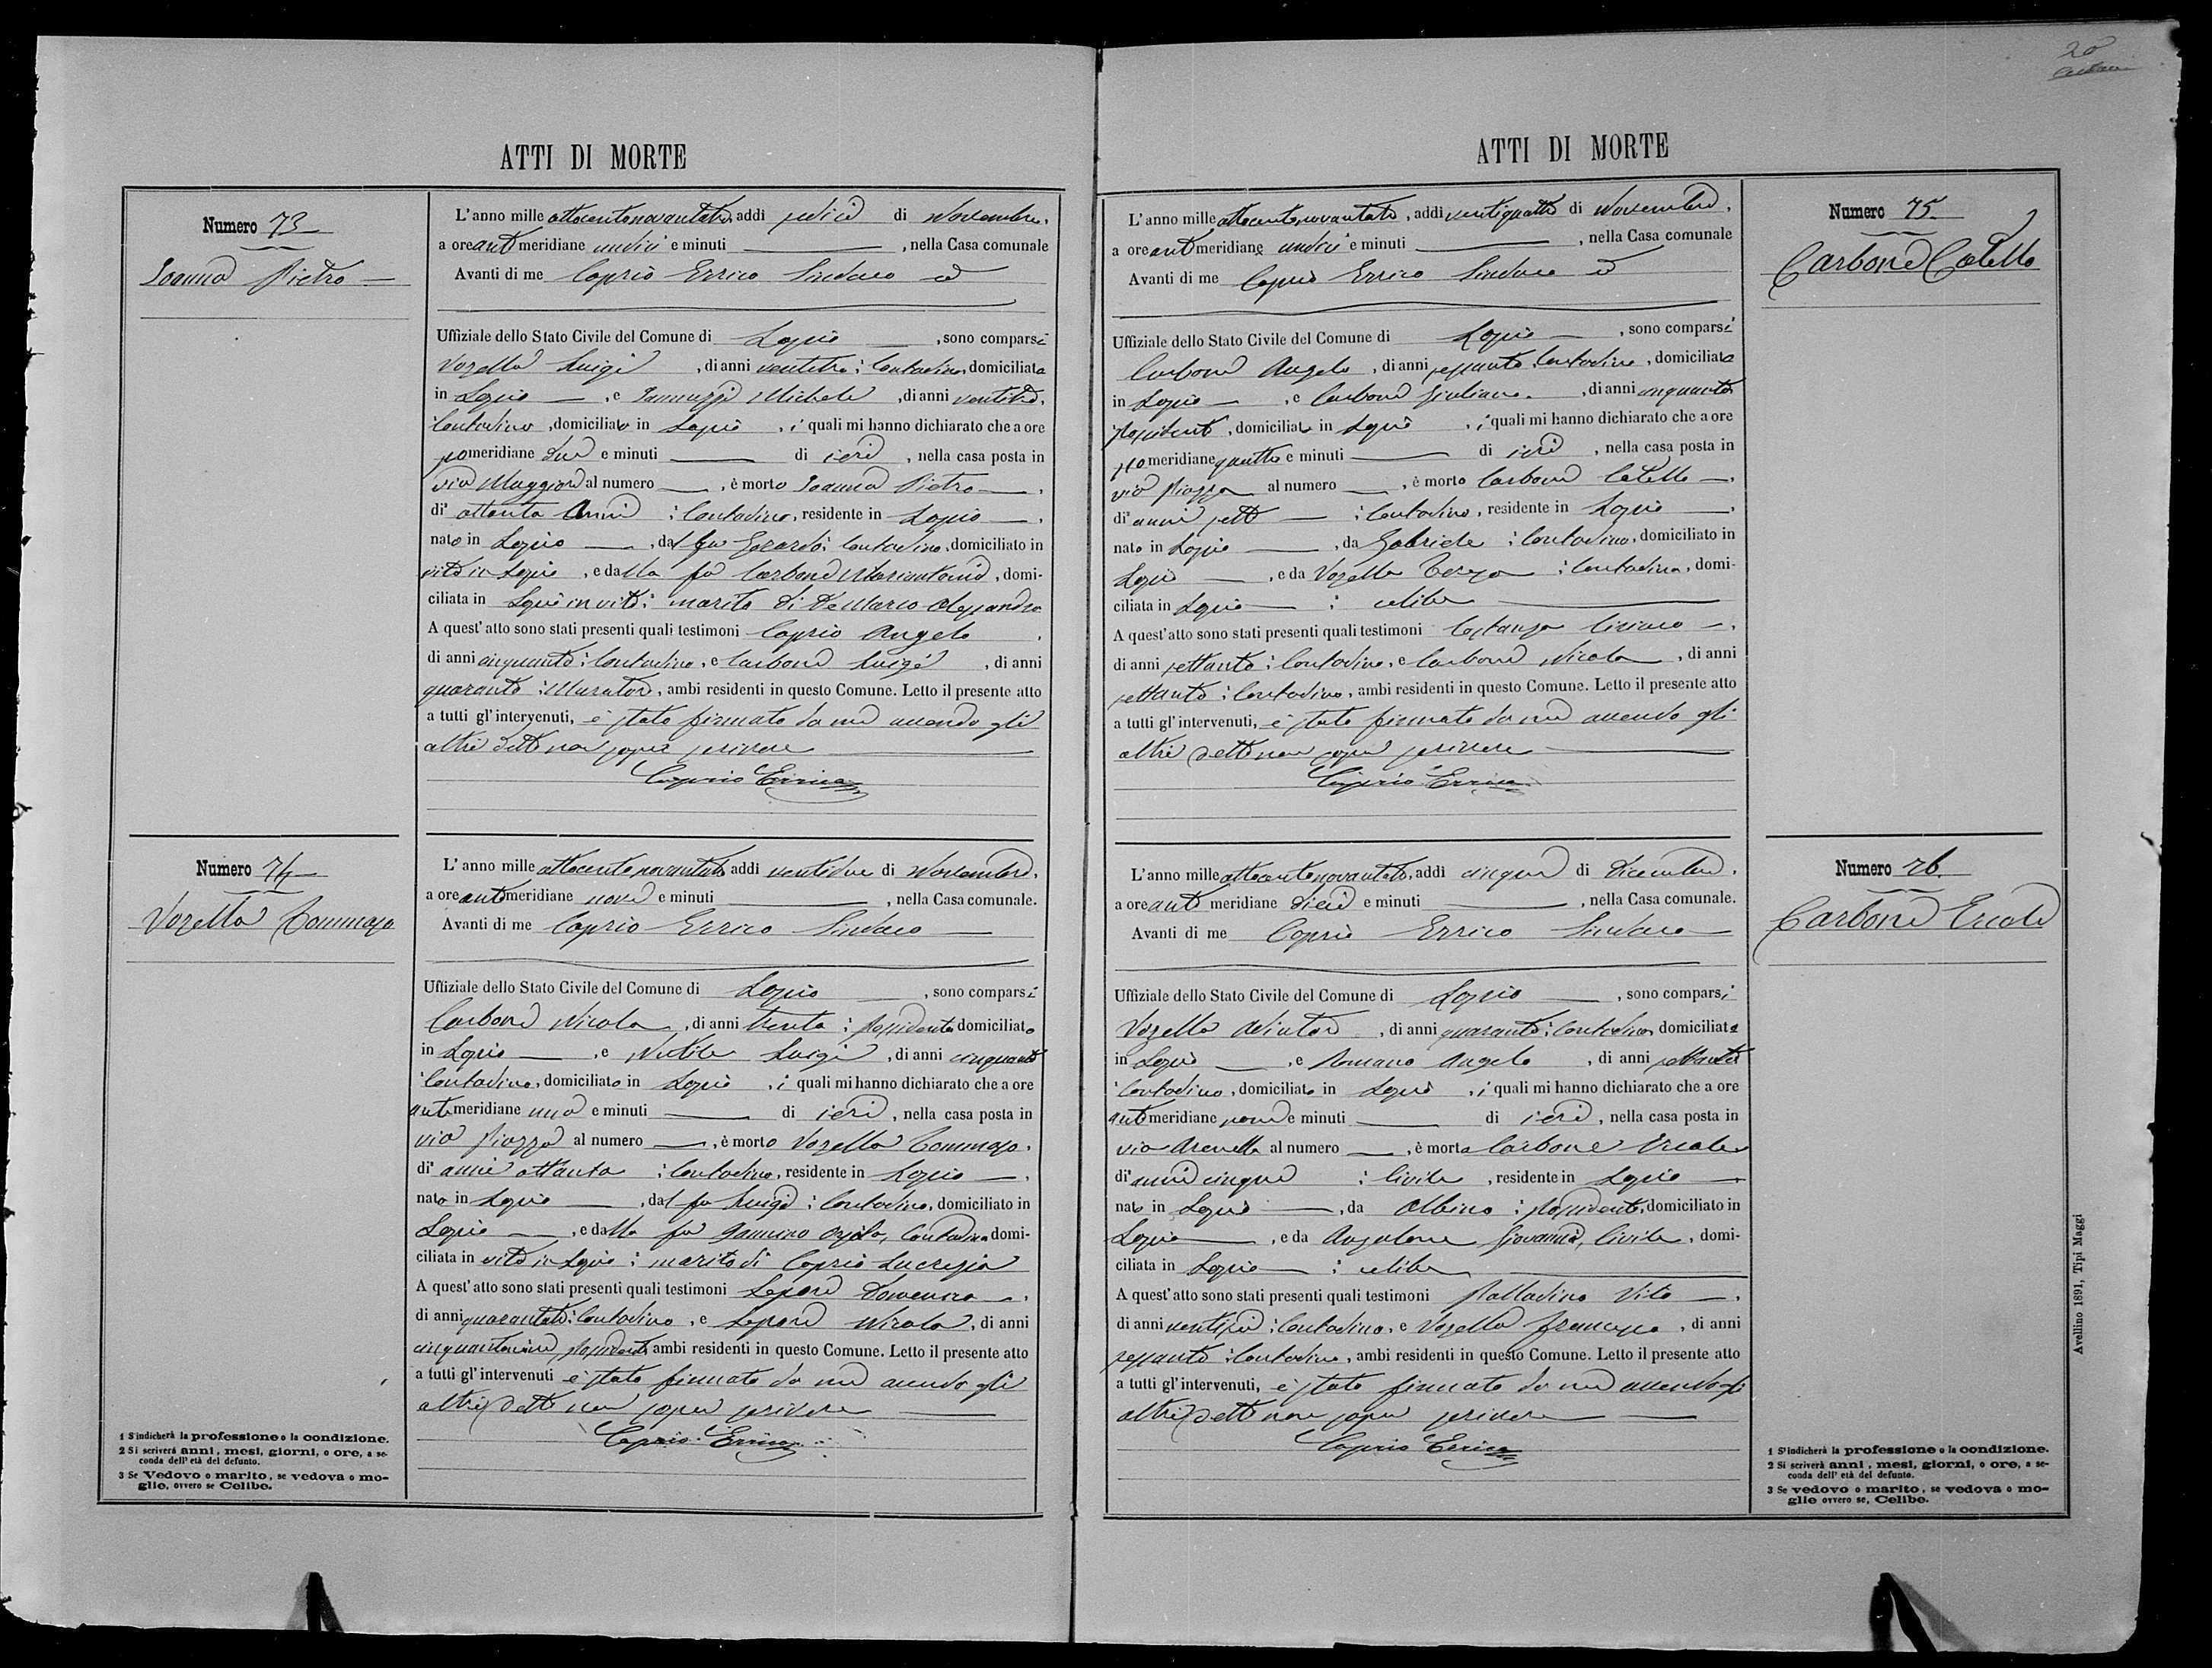 20
ATTI DI MORTE
Numero 73
Ioanna Pietro
L'anno mille ottocentonovantatre, addì sedici di Novembre,
a ore antimeridiane undici e minuti, nella Casa comunale
Avanti di me Caprio Errico Sindaco
Uffiziale dello Stato Civile del Comune di Lapio, sono comparsi
Vozella Luigi, di anni ventitre; Contadino, domiciliato
in Lapio, e Iannuzzi Michele, di anni ventitre,
Contadino, domiciliato in Lapio, i quali mi hanno dichiarato che a ore
pomeridiane due e minuti di ieri, nella casa posta in
via Maggiore al numero, è morto Ioanna Pietro,
di ottanta anni; Contadino, residente in Lapio,
nato in Lapio, dal fu Gerardo; Contadino, domiciliato in
vita in Lapio, e dalla fu Carbone Mariantonia, domi-
ciliata in Lapio in vita; marito di De Marco Alessandra
A quest' atto sono stati presenti quali testimoni Caprio Angelo,
di anni cinquanta; Contadino, e Carbone Luigi, di anni
quaranta; Muratore, ambi residenti in questo Comune. Letto il presente atto
a tutti gl' intervenuti, è stato firmato da me avendo gli
altri detto non saper scrivere
Caprio Errico
Numero 74
Vozella Tommaso
L' anno mille ottocentonovantatre, addì ventidue di Novembre,
a ore antimeridiane nove e minuti, nella Casa comunale.
Avanti di me Caprio Errico Sindaco
Uffiziale dello Stato Civile del Comune di Lapio, sono comparsi
Carbone Nicola, di anni trenta; Possidente domiciliato
in Lapio, e Luigi, di anni cinquanta
Contadino, domiciliato in Lapio, i quali mi hanno dichiarato che a ore
antimeridiane una e minuti di ieri, nella casa posta in
via Piazza al numero, è morto Vozella Tommaso,
di anni ottanta; Contadino, residente in Lapio,
nato in Lapio, dal fu Luigi; Contadino, domiciliato in
Lapio, e dalla fu Contadina domi-
ciliata in vita in Lapio; marito di Caprio Lucrezia
A quest' atto sono stati presenti quali testimoni Lepore Domenico,
di anni quarantatre; Contadino, e Lepore Nicola, di anni
possidente ambi residenti in questo Comune. Letto il presente atto
a tutti gl' intervenuti è stato firmato da me avendo gli
altri detto non saper scrivere
Caprio Errico
1 S'indicherà la professione o la condizione.
2 Si scriverà anni, mesi, giorni, o ore, a se-
conda dell' età del defunto.
3 Se Vedovo o marito, se vedova o mo-
glie, ovvero se Celibe.
ATTI DI MORTE
Numero 75
Carbone Catello
L'anno mille ottocentonovantatre, addì ventiquattro di Novembre,
a ore antimeridiane undici e minuti, nella Casa comunale
Avanti di me Caprio Errico Sindaco
Uffiziale dello Stato Civile del Comune di Lapio, sono comparsi
Carbone Angelo, di anni sessanta, Contadino, domiciliato
in Lapio, e Carbone Giuliano, di anni cinquanta
possidente, domiciliato in Lapio, i quali mi hanno dichiarato che a ore
pomeridiane quattro e minuti di ieri, nella casa posta in
via Piazza al numero, è morto Carbone Catello,
di anni sette; Contadino, residente in Lapio,
nato in Lapio, da Gabriele; Contadino, domiciliato in
Lapio, e da Vozella Teresa; Contadina, domi-
ciliata in Lapio; celibe
A quest' atto sono stati presenti quali testimoni Costanza Ciriaco,
di anni settanta; Contadino, e Carbone Nicola, di anni
settanta; Contadino, ambi residenti in questo Comune. Letto il presente atto
a tutti gl' intervenuti, è stato firmato da me avendo gli
altri detto non saper scrivere
Caprio Errico
Numero 76
Carbone Ercole
L' anno mille ottocentonovantatre, addì cinque di Dicembre,
a ore antimeridiane dieci e minuti, nella Casa comunale.
Avanti di me Caprio Errico Sindaco
Uffiziale dello Stato Civile del Comune di Lapio, sono comparsi
Vozella, di anni quaranta; Contadino domiciliato
in Lapio, e Romano Angelo, di anni settanta
Contadino, domiciliato in Lapio, i quali mi hanno dichiarato che a ore
antimeridiane nove e minuti di ieri, nella casa posta in
via Arenella al numero, è morto Carbone Ercole
di anni cinque; Civile, residente in Lapio
nato in Lapio, da Albino; Possidente, domiciliato in
Lapio, e da Giovanna, Civile, domi-
ciliata in Lapio; celibe
A quest' atto sono stati presenti quali testimoni Palladino Vito,
di anni ventisei; Contadino, e Vozella Francesco, di anni
sessanta; Contadino, ambi residenti in questo Comune. Letto il presente atto
a tutti gl' intervenuti, è stato firmato da me avendo gli
altri detto non saper scrivere
Caprio Errico
1 S'indicherà la professione o la condizione.
2 Si scriverà anni, mesi, giorni, o ore, a se-
conda dell' età del defunto.
3 Se vedovo o marito, se vedova o mo-
glie ovvero se, Celibe.
Avellino 1891, Tipi Maggi